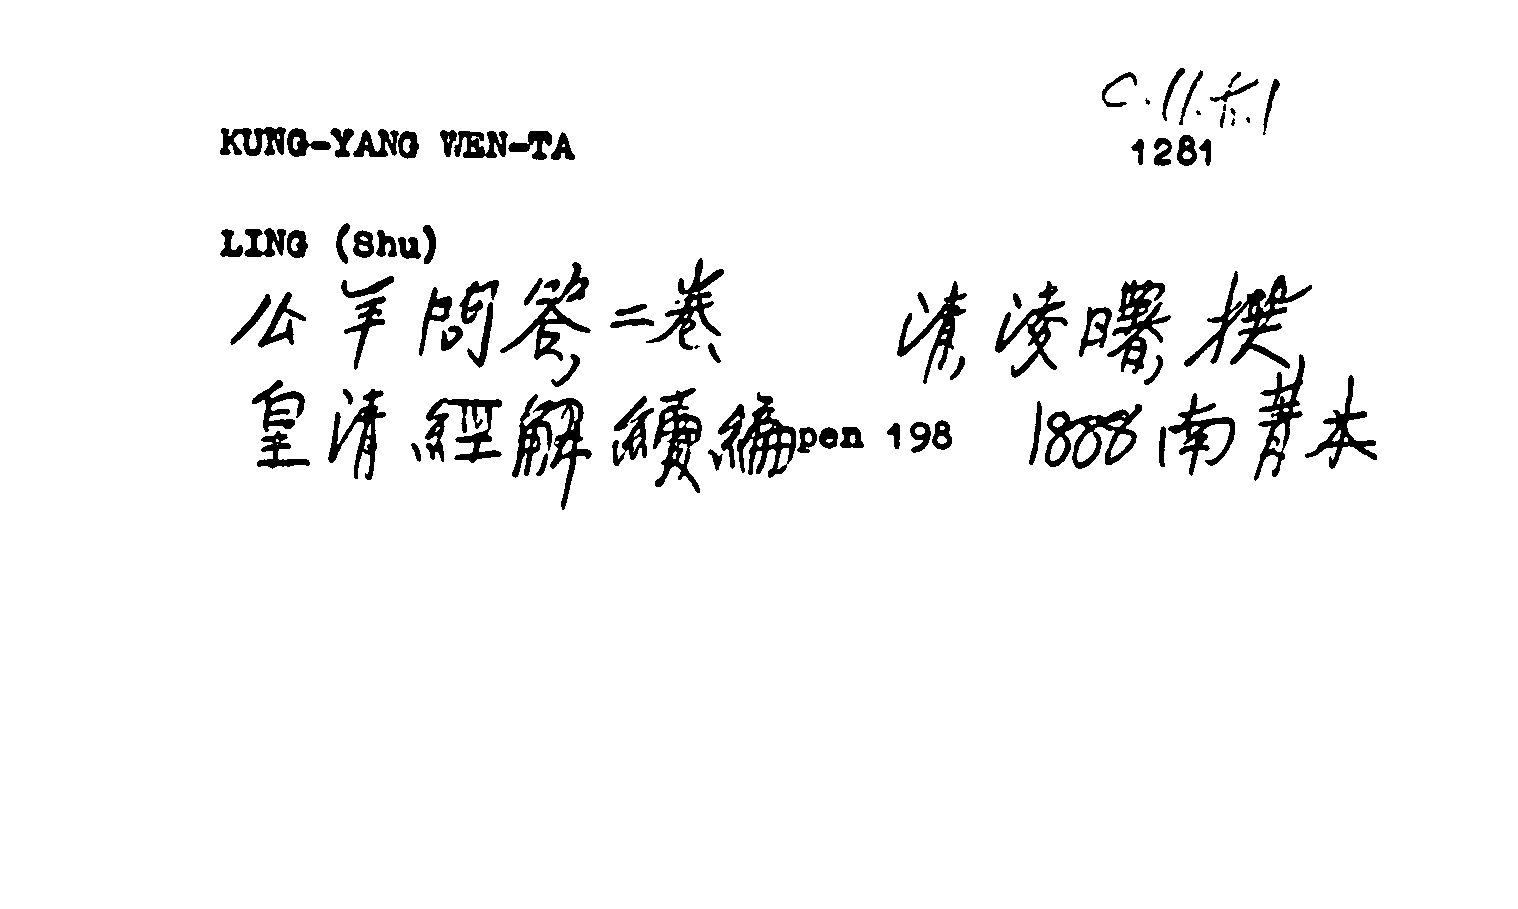 C.11.fi.1
KUNG-YANG WEN-TA 1281
LING (Shu)
公羊問答二卷 清凌曙撰
皇清經解續編pen 198 1888南菁本